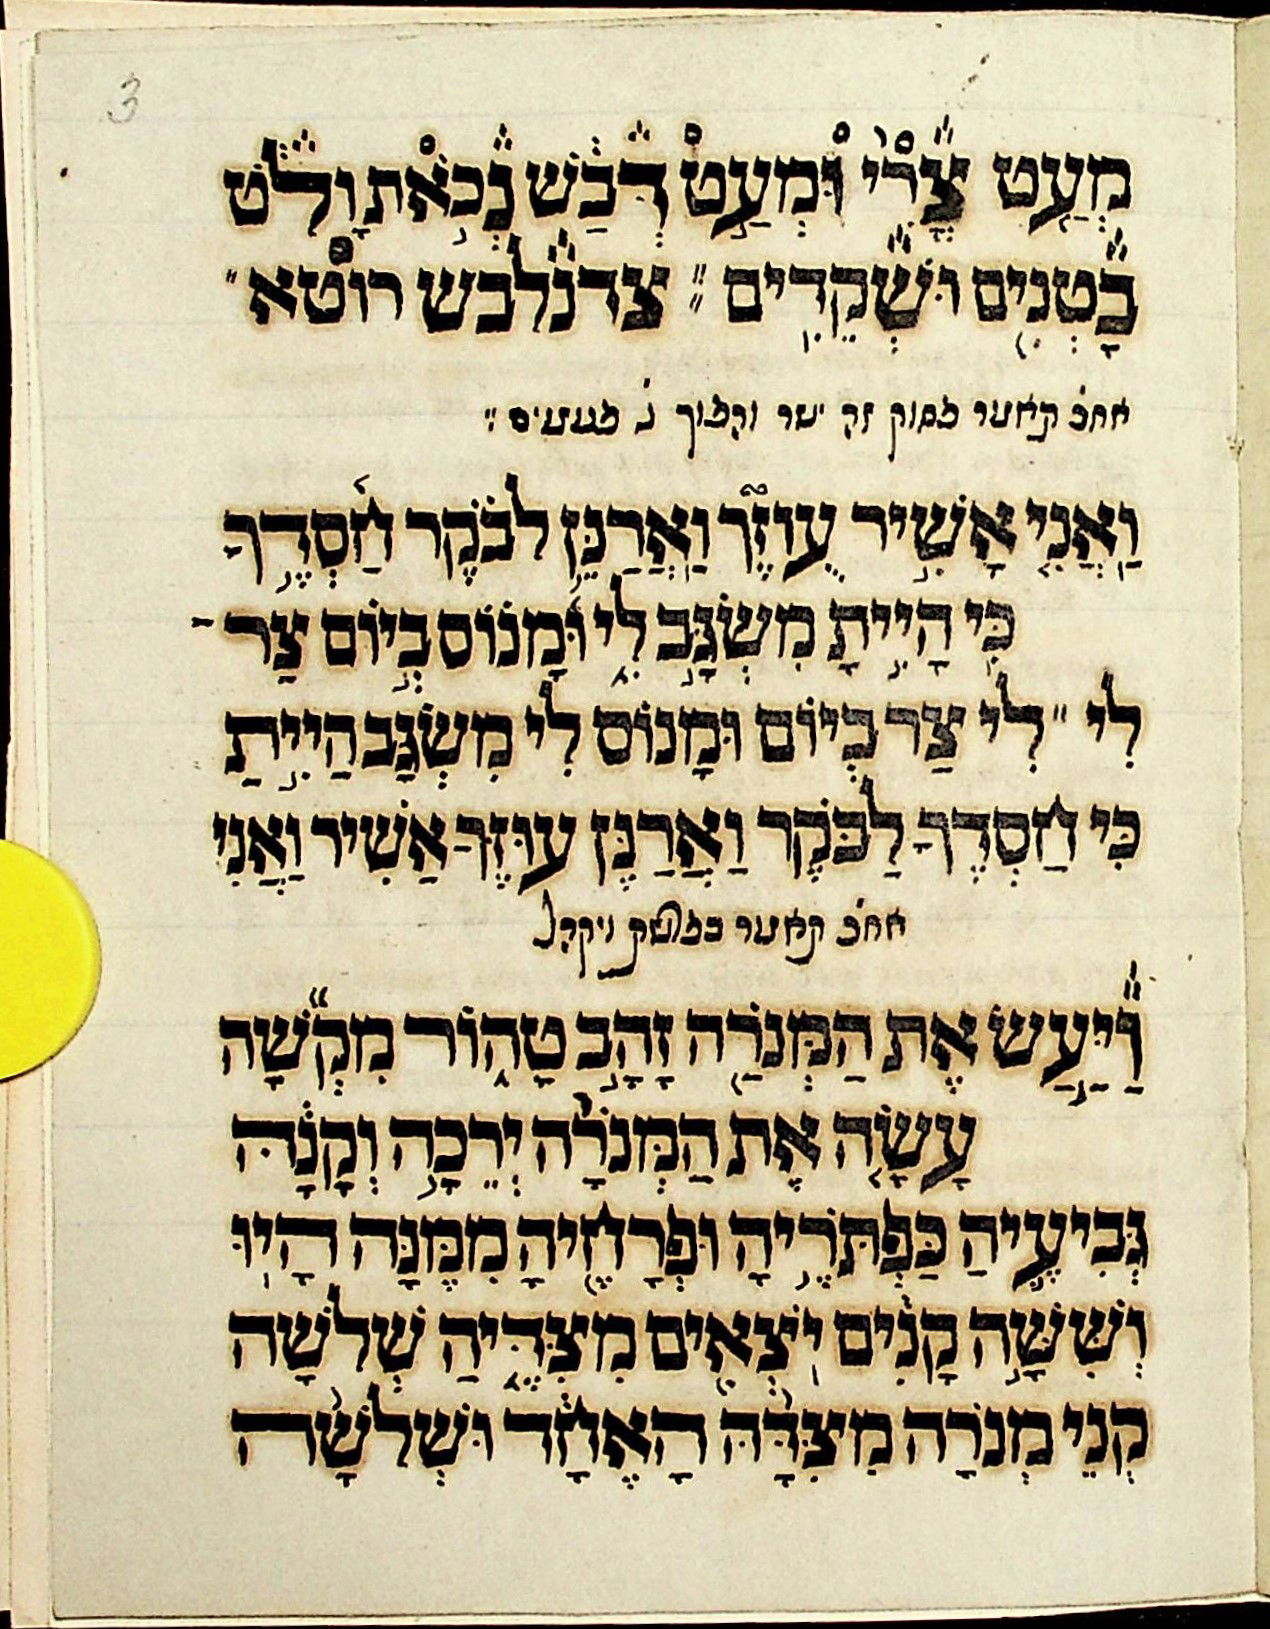 3
מְעַט צֳרִי וּמְעַט דְּבַשׁ נְכֹאת וָלֹט
בָּטְנִים וּשְׁקֵדִים ׃ צדנלבש רוטא״
וַאֲנִי אָשִׁיר עֻוזֶּךָ וַאֲרַנֵּן לבֹּקֶר חַסְדֶּךָ
כִּי הָיִיתָ מִשְׂגָּב לִי וּמָנוֹס בְּיוֹם צַר
לִי ״ לִי צַר בְּיוֹם וּמָנוֹס לִי מִשְׂגָּב הַיִיתַ
כִּי חַסְדֶּךָ לַבֹּקֶר וַאֲרַנֶּן עוּזֶּךָ אַשִׁיר וַאֲנִי
וַיַּעַשׂ אֶת הַמְּנֹרָה זָהָב טָהוֹר מִקְשָׁה
עָשָׂה אֶת הַמְּנֹרָה יְרֵכָהּ וְקָנָהּ
גְּבִיעֶיהַ כַּפְתֹּרֶיהָ וּפְרָחֶיהָ מִמֶּנָּה הָיוּ
וְשִׁשָּׁה קָנִים יֹצְאִים מִצִּדֶּיהַ שְׁלשָׁה
קְנֵי מְנֹרָה מִצִּדָּהּ הָאֶחָד וּשְׁלשָׁה